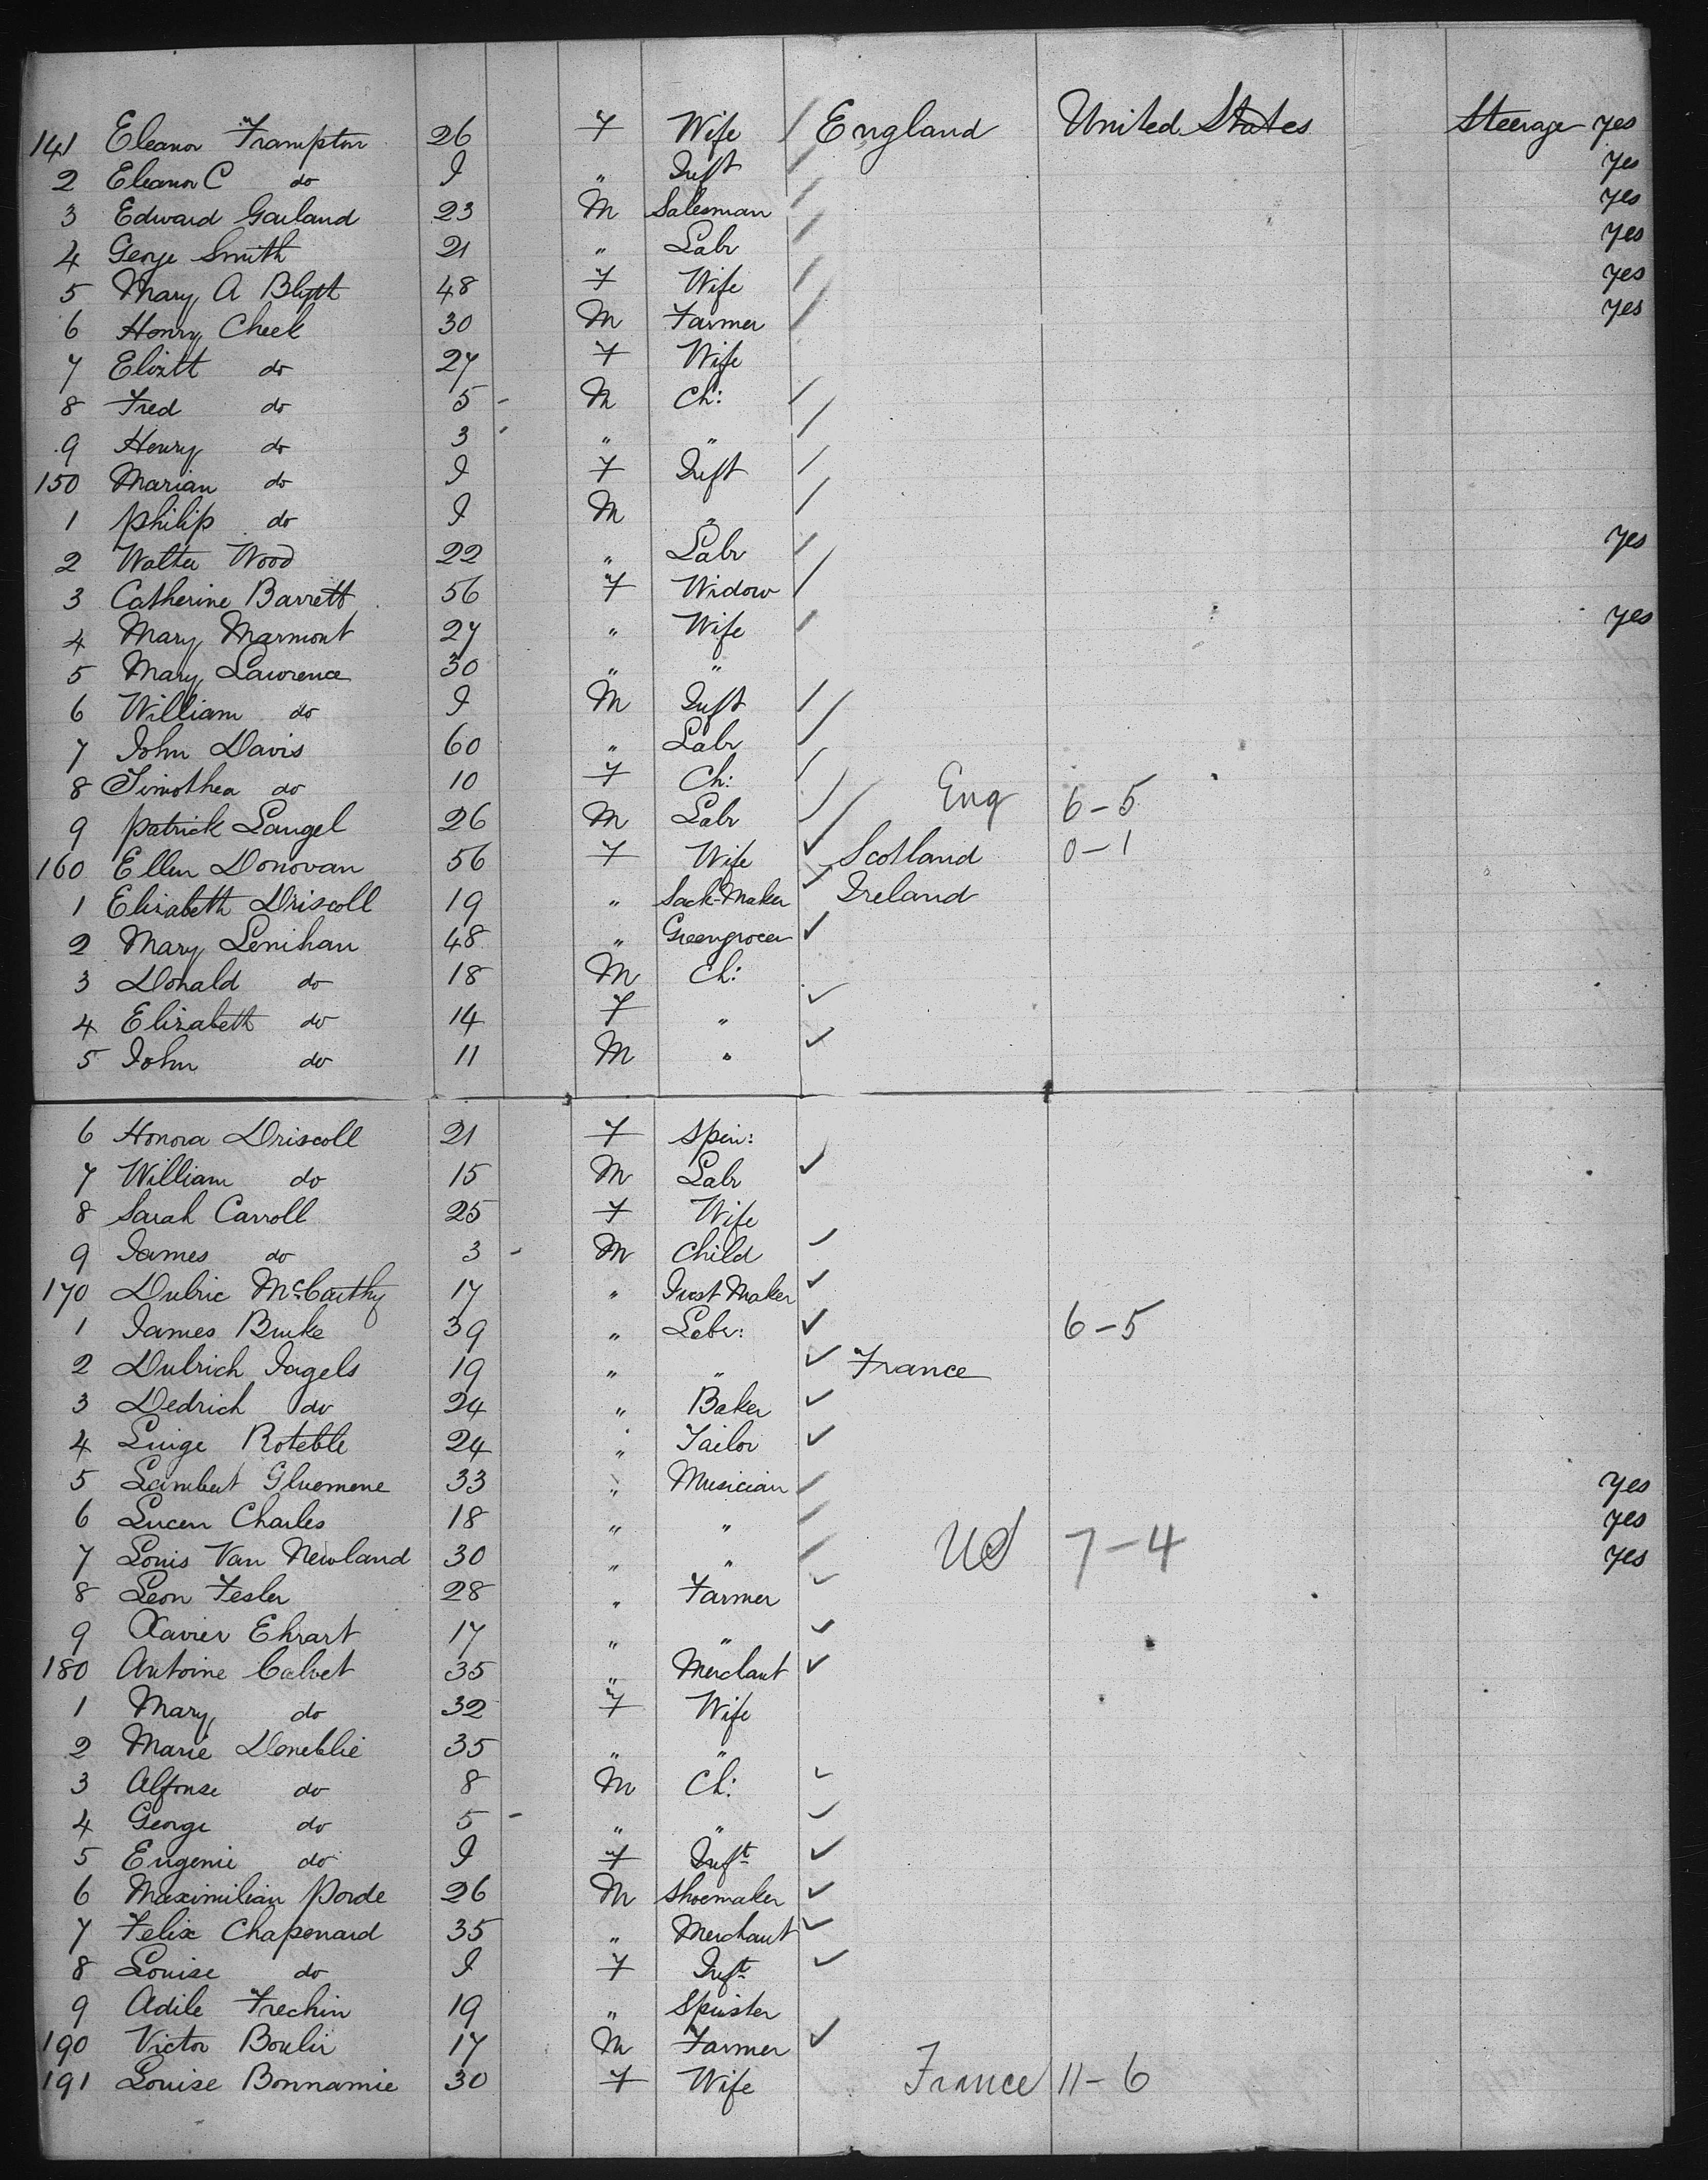 141 Eleanor Frampton 26 F Wife / England United States Steerage yes
2 Eleanor C do I " Inft / yes
3 Edward Garland 23 M Salesman / yes
4 George Smith 21 " Labr / yes
5 Mary A Blyth 48 F Wife / yes
6 Henry Cheek 30 M Farmer / yes
7 Elizth do 27 F Wife
8 Fred do 5 - M Ch: /
9 Henry do 3 ' " " /
150 Marian do I F Inft /
1 Philip do I M " /
2 Walter Wood 22 " Labr / yes
3 Catherine Barrett 56 F Widow /
4 Mary Marmont 27 " Wife / yes
5 Mary Lawrence 30 " "
6 William do I M Inft /
7 John Davis 60 " Labr /
8 Timothea do 10 F Ch: /
9 Patrick Langel 26 M Labr / Eng 6-5
160 Ellen Donovan 56 F Wife ✓ Scotland 0-1
1 Elizabeth Driscoll 19 " Sack-Maker ✓ Ireland
2 Mary Lenihan 48 " Greengrocer ✓
3 Donald do 18 M Ch:
4 Elizabeth do 14 F " ✓
5 John do 11 M " ✓
6 Honora Driscoll 21 F Spin:
7 William do 15 M Labr ✓
8 Sarah Carroll 25 F Wife
9 James do 3 - M Child ✓
170 Dubric McCarthy 17 " Maker ✓
1 James Burke 39 " Labr: ✓ 6-5
2 Dulrich Jagels 19 " " ✓ France
3 Dedrich do 24 " Baker ✓
4 Luige Roteble 24 " Tailor ✓
5 Lambert Gluemene 33 " Musician / yes
6 Lucen Charles 18 " " / yes
7 Louis Van Newland 30 " " / 7-4 yes
8 Leon Fesler 28 " Farmer ✓
9 Xavier Ehrart 17 " " ✓
180 Antoine Calvet 35 " Merchant ✓
1 Mary do 32 F Wife
2 Marie Doneblie 35 " "
3 Alfonse do 8 M Ch: ✓
4 George do 5 - " " ✓
5 Eugenie do I F Inft ✓
6 Maximilian Porde 26 M Shoemaker ✓
7 Felix Chapenard 35 " Merchant ✓
8 Louise do I F Inft ✓
9 Adile Frechin 19 " Spinster
190 Victor Boulir 17 M Farmer ✓
191 Louise Bonnamie 30 F Wife France 11-6